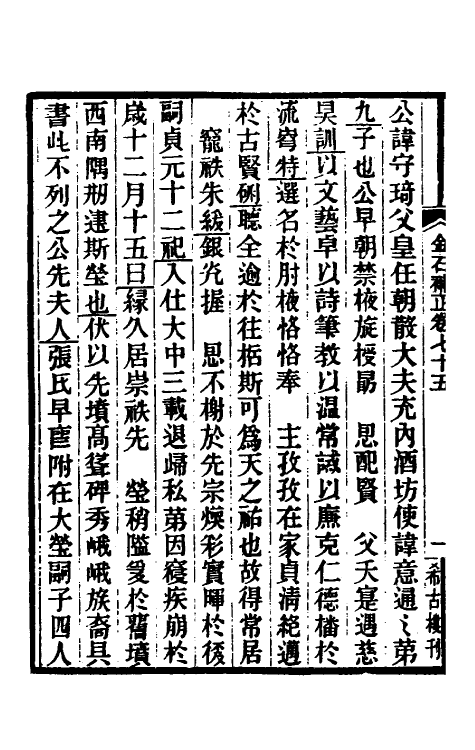 金石補正卷七十五
一
希古樓刊
公諱守琦父皇任朝散大夫充內酒坊使諱意通〻第
九子也公早朝禁掖旋授勗　恩配賢　父夭寔遇慈
昊訓以文藝卓以詩筆教以溫常誡以廉克仁德播於
流胷特選名於肘掖恪恪奉　主孜孜在家貞清絕邁
於古賢硎聽全逾於往栢斯可爲天之祐也故得常居
寵祑朱綬銀光握　恩不榭於先宗煥彩實暉於後
嗣貞元十二祀入仕大中三載退歸私苐因寢疾崩於
歲十二月十五日緣久居崇祑先　塋稍隘爰於舊墳
西南隅刱建斯塋也伏以先墳髙聳碑秀峨峨族裔具
書此不列之公先夫人張氏早窆附在大塋嗣子四人